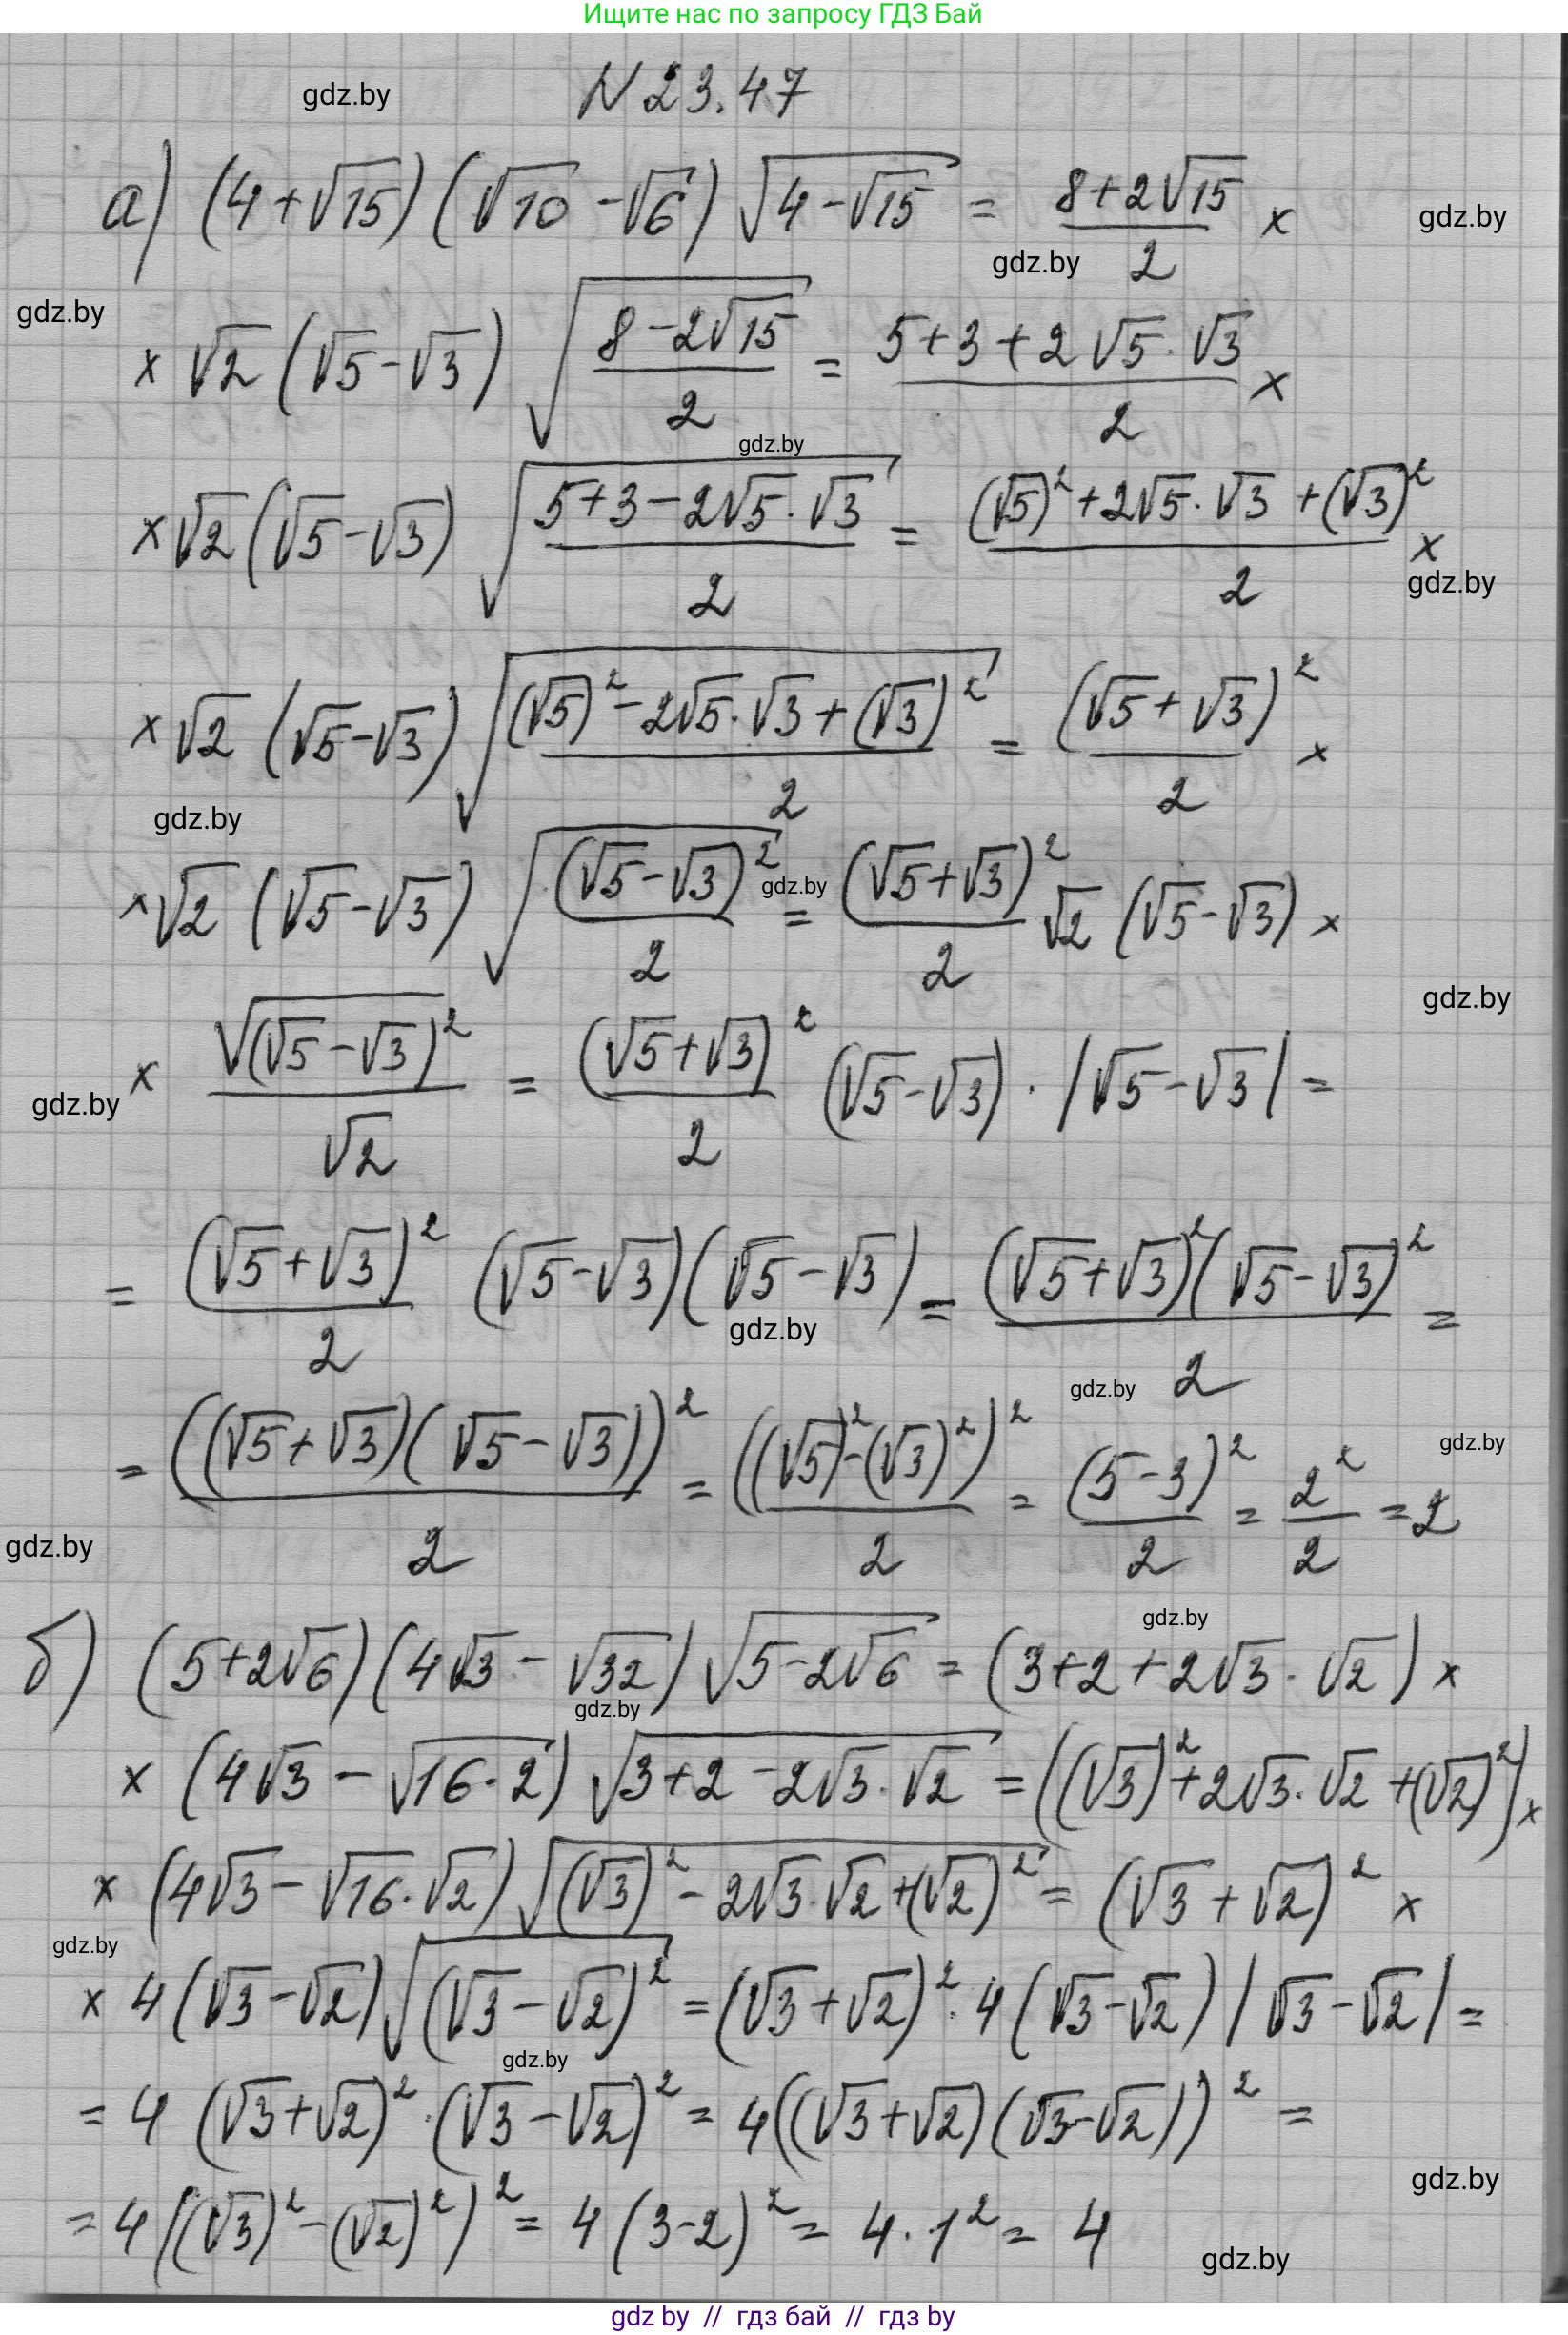 Ищите нас по запросу ГДЗ Бай
gdz.by
N 23.47
а) (4+√15)(√10-√6)√(4-√15) = (8+2√15)/2 ×
gdz.by
gdz.by
gdz.by
× √2(√5-√3)√((8-2√15)/2) = (5+3+2√5·√3)/2 ×
gdz.by
× √2(√5-√3)√((5+3-2√5·√3)/2) = ((√5)²+2√5·√3+(√3)²)/2 ×
gdz.by
× √2(√5-√3)√(((√5)²-2√5·√3+(√3)²)/2) = (√5+√3)²/2 ×
gdz.by
× √2(√5-√3)√((√5-√3)²/2) = (√5+√3)²/2 √2(√5-√3) ×
gdz.by
gdz.by
× √((√5-√3)²)/√2 = (√5+√3)²/2 (√5-√3)·|√5-√3| =
gdz.by
= (√5+√3)²/2 (√5-√3)(√5-√3) = (√5+√3)²(√5-√3)²/2 =
gdz.by
gdz.by
= ((√5+√3)(√5-√3))²/2 = ((√5)²-(√3)²)²/2 = (5-3)²/2 = 2²/2 = 2
gdz.by
gdz.by
gdz.by
б) (5+2√6)(4√3-√32)√(5-2√6) = (3+2+2√3·√2) ×
gdz.by
× (4√3-√(16·2))√(3+2-2√3·√2) = ((√3)²+2√3·√2+(√2)²) ×
× (4√3-√16·√2)√((√3)²-2√3·√2+(√2)²) = (√3+√2)² ×
gdz.by
× 4(√3-√2)√((√3-√2)²) = (√3+√2)²·4(√3-√2)|√3-√2| =
gdz.by
= 4(√3+√2)²·(√3-√2)² = 4((√3+√2)(√3-√2))² =
gdz.by
= 4((√3)²-(√2)²)² = 4(3-2)² = 4·1² = 4
gdz.by
gdz by // гдз бай // гдз by